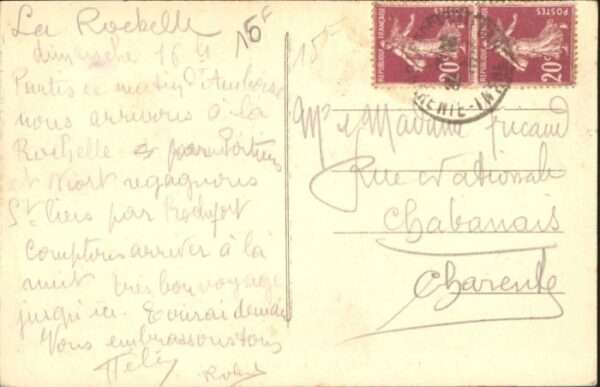 La Rochelle
dimanche 16 h
Partis ce matin d'Amboise
nous arrivons à la
Rochelle par Poitiers
et Niort regagnons
St Ciers par Rochefort
comptons arriver à la
nuit très bon voyage
jusqu'ici. Ecrirai demain
Vous embrassons tous
Robert
15F
15F
RÉPUBLIQUE FRANÇAISE
POSTES
20c
RÉPUBLIQUE FRANÇAISE
POSTES
20c
CHARENTE-INF
Mr & Madame
Rue Nationale
Chabanais
Charente